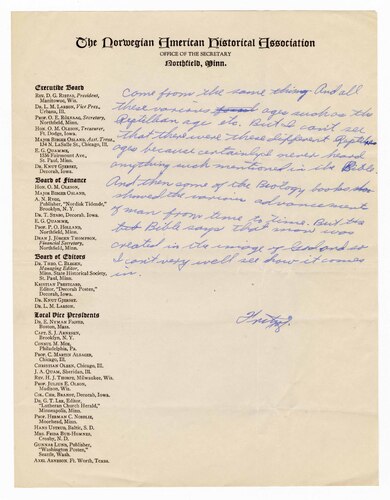 The Norwegian American Historical Association
OFFICE OF THE SECRETARY
Northfield, Minn.
Executive Board
REV. D. G. RISTAD, President,
Manitowoc, Wis.
DR. L. M. LARSON, Vice Pres.,
Urbana, Ill.
PROF. O. E. RÖLVAAG, Secretary,
Northfield, Minn.
HON. O. M. OLESON, Treasurer,
Ft. Dodge, Iowa.
MAJOR BIRGER OSLAND, Asst. Treas.,
134 N. LaSalle St., Chicago, Ill.
E. G. QUAMME,
1556 Fairmount Ave.,
St. Paul, Minn.
DR. KNUT GJERSET,
Decorah, Iowa.
Board of Finance
HON. O. M. OLESON,
MAJOR BIRGER OSLAND,
A. N. RYGG,
Publisher, "Nordisk Tidende",
Brooklyn, N. Y.
DR. T. STABO, Decorah, Iowa.
E. G. QUAMME,
PROF. P. O. HOLLAND,
Northfield, Minn.
DEAN J. JÖRGEN THOMPSON,
Financial Secretary,
Northfield, Minn.
Board of Editors
DR. THEO. C. BLEGEN,
Managing Editor,
Minn. State Historical Society,
St. Paul, Minn.
KRISTIAN PRESTGARD,
Editor, "Decorah Posten,"
Decorah, Iowa.
DR. KNUT GJERSET,
DR. L. M. LARSON.
Local Vice Presidents
DR. E. NYMAN FIGVED,
Boston, Mass.
CAPT. S. J. ARNESEN,
Brooklyn, N. Y.
CONSUL M. MOE,
Philadelphia, Pa.
PROF. C. MARTIN ALSAGER,
Chicago, Ill.
CHRISTIAN OLSEN, Chicago, Ill.
J. A. QUAM, Sheridan, Ill.
REV. H. J. THORPE, Milwaukee, Wis.
PROF. JULIUS E. OLSON,
Madison, Wis.
COL. CHR. BRANDT, Decorah, Iowa.
DR. G. T. LEE, Editor,
"Lutheran Church Herald,"
Minneapolis, Minn.
PROF. HERMAN C. NORDLIE,
Moorhead, Minn.
HANS USTRUD, Baltic, S. D.
MRS. FRIDA BUE-HOMNES,
Crosby, N. D.
GUNNAR LUND, Publisher,
"Washington Posten,"
Seattle, Wash.
AXEL ARNESON, Ft. Worth, Texas.
Come from the same thing. And all
these various ages such as the
Reptilean age etc. But I can't see
that there were these different Reptile
ages because certainly I never heard
anything such mentioned in the Bible.
And then some of the Biology books
showed the various advancements
of man from time to time. But the
Bible says that man was
created in the image of God and so
I can't very well see how it comes
in.
Fritz J.